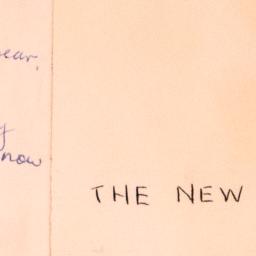 ear,
y
now
THE NEW